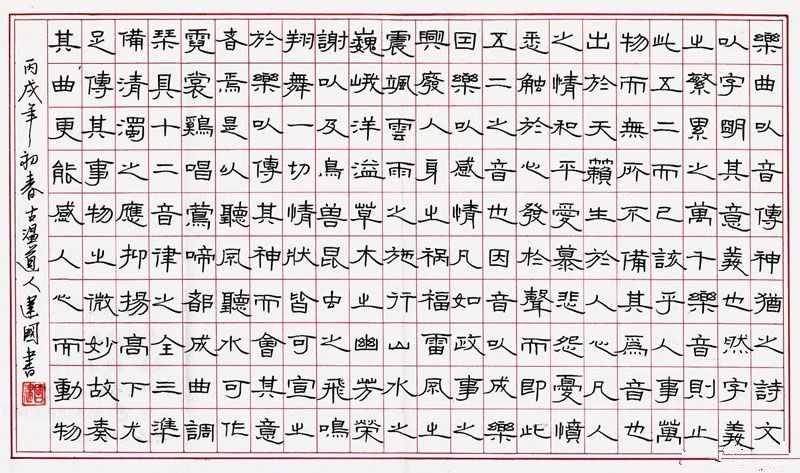 樂曲以音傳神猶之詩文
以字明其意義也然字義
之繁累之萬千樂音則止
此五二而已該乎人事萬
物而無所不備其爲音也
出於天籟生於人心凡人
之情和平愛慕悲怨憂憤
悉觸於心發於聲而即此
五二之音也因音以成樂
因樂以感情凡如政事之
興廢人身之禍福雷風之
震颯雲雨之施行山水之
巍峨洋溢草木之幽芳榮
謝以及鳥兽昆虫之飛鳴
翔舞一切情狀皆可宣之
於樂以傳其神而會其意
音焉是以聽風聽水可作
霓裳鷄唱鶯啼都成曲調
琹具十二音律之全三準
備清濁之應抑揚高下尤
足傳其事物之微妙故奏
其曲更能感人心而動物
丙戌年初春古温道人建國書